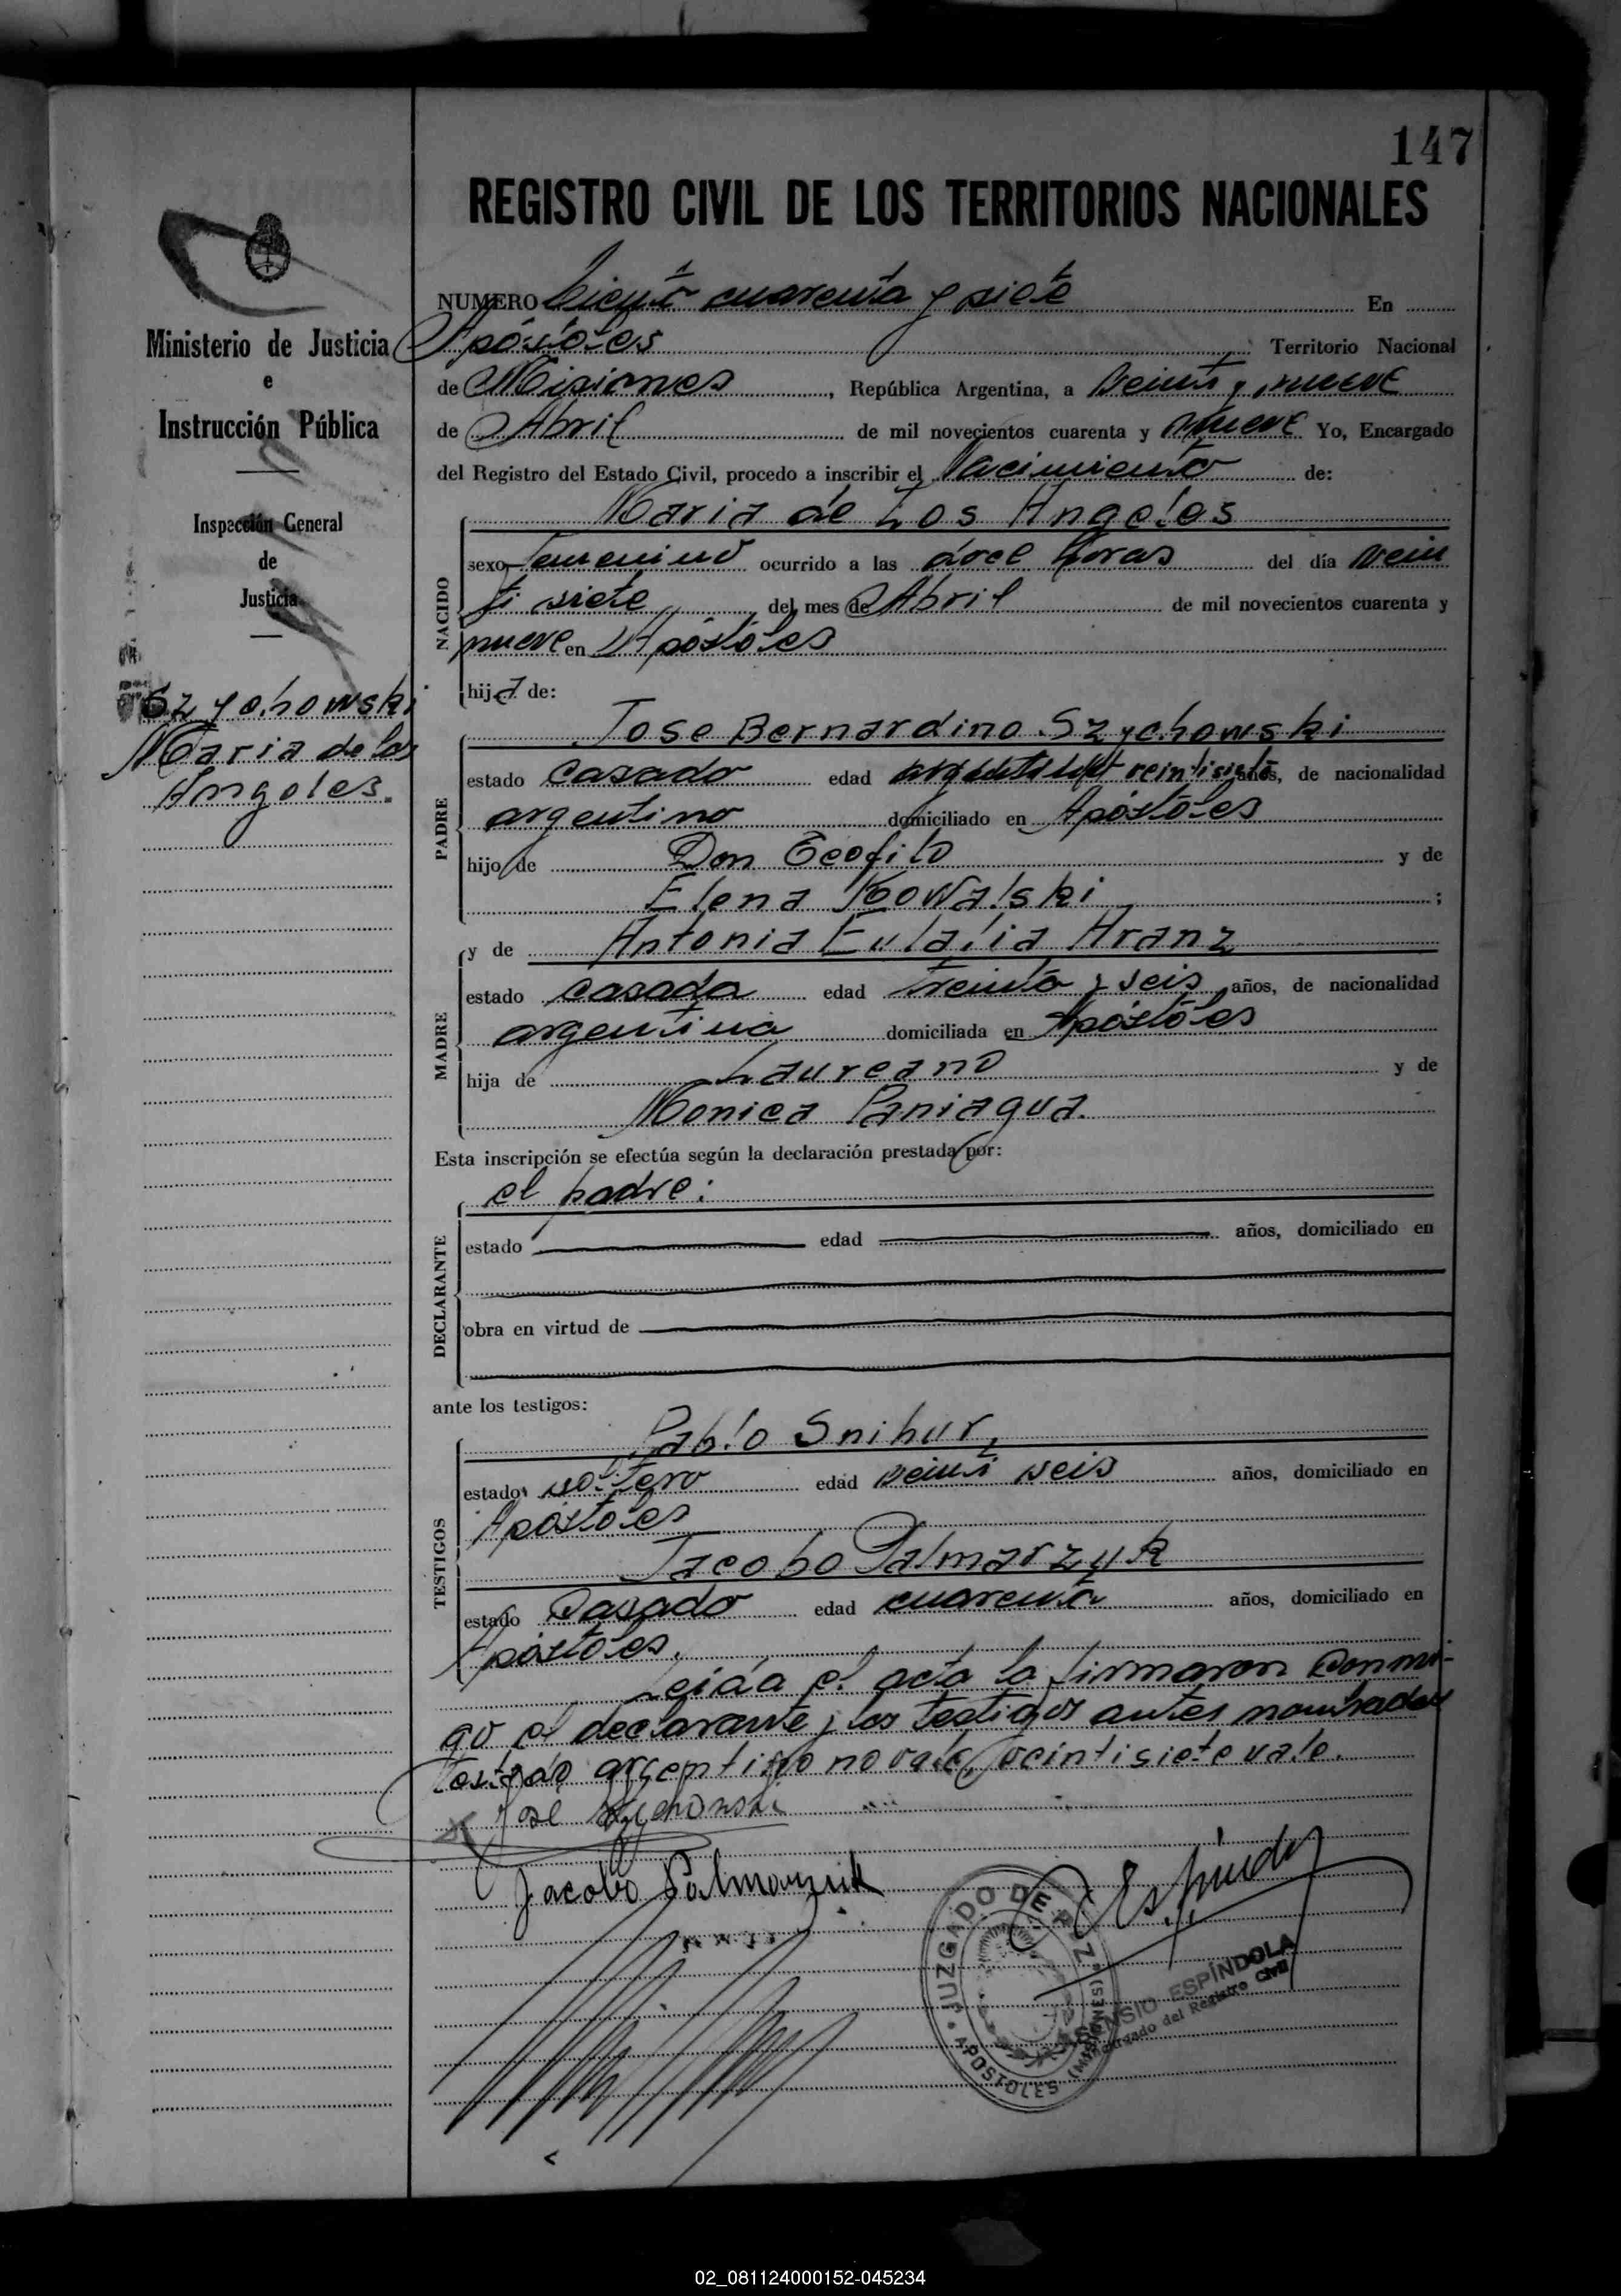 147
REGISTRO CIVIL DE LOS TERRITORIOS NACIONALES
Ministerio de Justicia
e
Instrucción Pública
Inspección General
de
Justicia
Szychowski
Maria de los
Angeles.
NUMERO Ciento cuarenta y siete En
Apóstoles Territorio Nacional
de Misiones, República Argentina, a veinti y nueve
de Abril de mil novecientos cuarenta y nueve Yo, Encargado
del Registro del Estado Civil, procedo a inscribir el Nacimiento de:
NACIDO
Maria de Los Angeles
sexo femenino ocurrido a las doce horas del día vein
ti siete del mes de Abril de mil novecientos cuarenta y
nueve en Apóstoles
hija de:
PADRE
Jose Bernardino Szychowski
estado casado edad veintisiete años, de nacionalidad
argentino domiciliado en Apóstoles
hijo de Don Teofilo y de
Elena Kowalski ;
MADRE
y de Antonia Eulalia Aranz
estado casada edad treinta y seis años, de nacionalidad
argentina domiciliada en Apóstoles
hija de Laureano y de
Monica Paniagua.
Esta inscripción se efectúa según la declaración prestada por:
DECLARANTE
el padre:
estado edad años, domiciliado en
obra en virtud de
ante los testigos:
TESTIGOS
Pablo Snihur,
estado soltero edad veinti seis años, domiciliado en
Apóstoles
Jacobo Palmarzyk
estado Casado edad cuarenta años, domiciliado en
Apóstoles.
Leida el acta la firmaron conmi-
go el declarante y los testigos antes nombrados
Testado argentino no vale, veintisiete vale.
José Szychowski
Jacobo Palmarzuk
Espíndola
JUZGADO DE PAZ
APOSTOLES (MISIONES)
ASENSIO ESPÍNDOLA
Encargado del Registro Civil
02_081124000152-045234